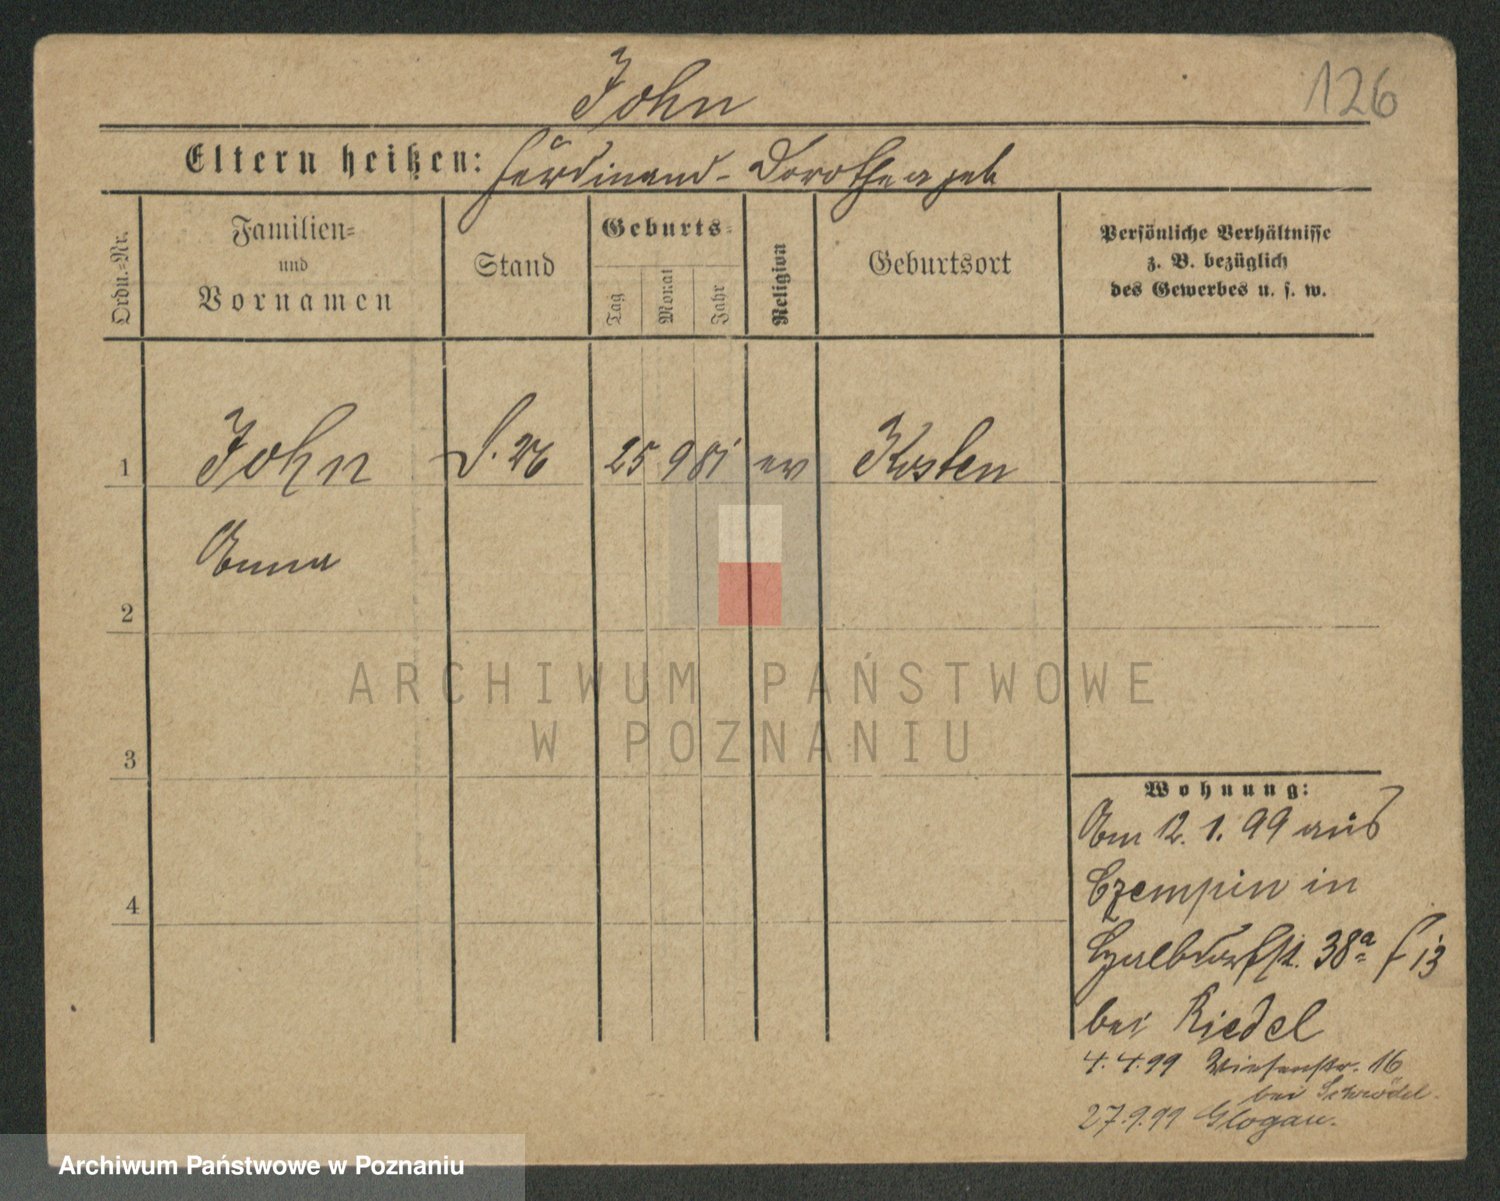 126
John
Eltern heißen: Ferdinand - Dorothea geb
Ordn.=Nr.
Familien=
und
Vornamen
Stand
Geburts=
Tag
Monat
Jahr
Religion
Geburtsort
Persönliche Verhältnisse
z. B. bezüglich
des Gewerbes u. s. w.
1 John 25 9 81 ev Kosten
Anna
2
3
4
Wohnung:
Am 12. 1. 99 aus
Czempin in
38a
bei Riedel
4.4.99 Wiesenstr. 16
bei Schrödel.
27.9.99 Glogau.
ARCHIWUM PAŃSTWOWE
W POZNANIU
Archiwum Państwowe w Poznaniu